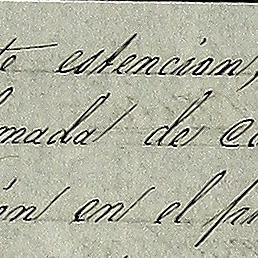 te estencion,
mada de
ón en el